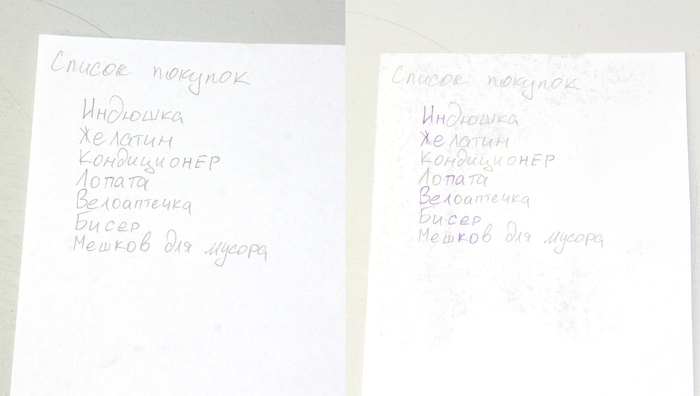 Список покупок
Индюшка
Желатин
Кондиционер
Лопата
Велоаптечка
Бисер
Мешков для мусора
Список покупок
Индюшка
Желатин
Кондиционер
Лопата
Велоаптечка
Бисер
Мешков для мусора